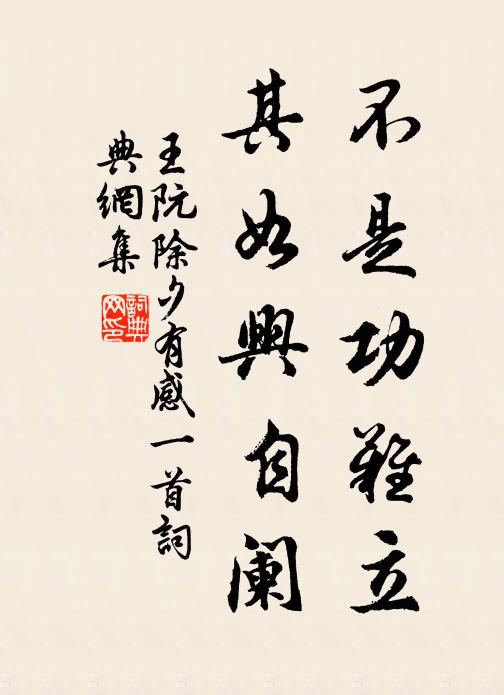 不是功難立
其如興自阑
王阮除夕有感一首詞
典網集
詞典网印